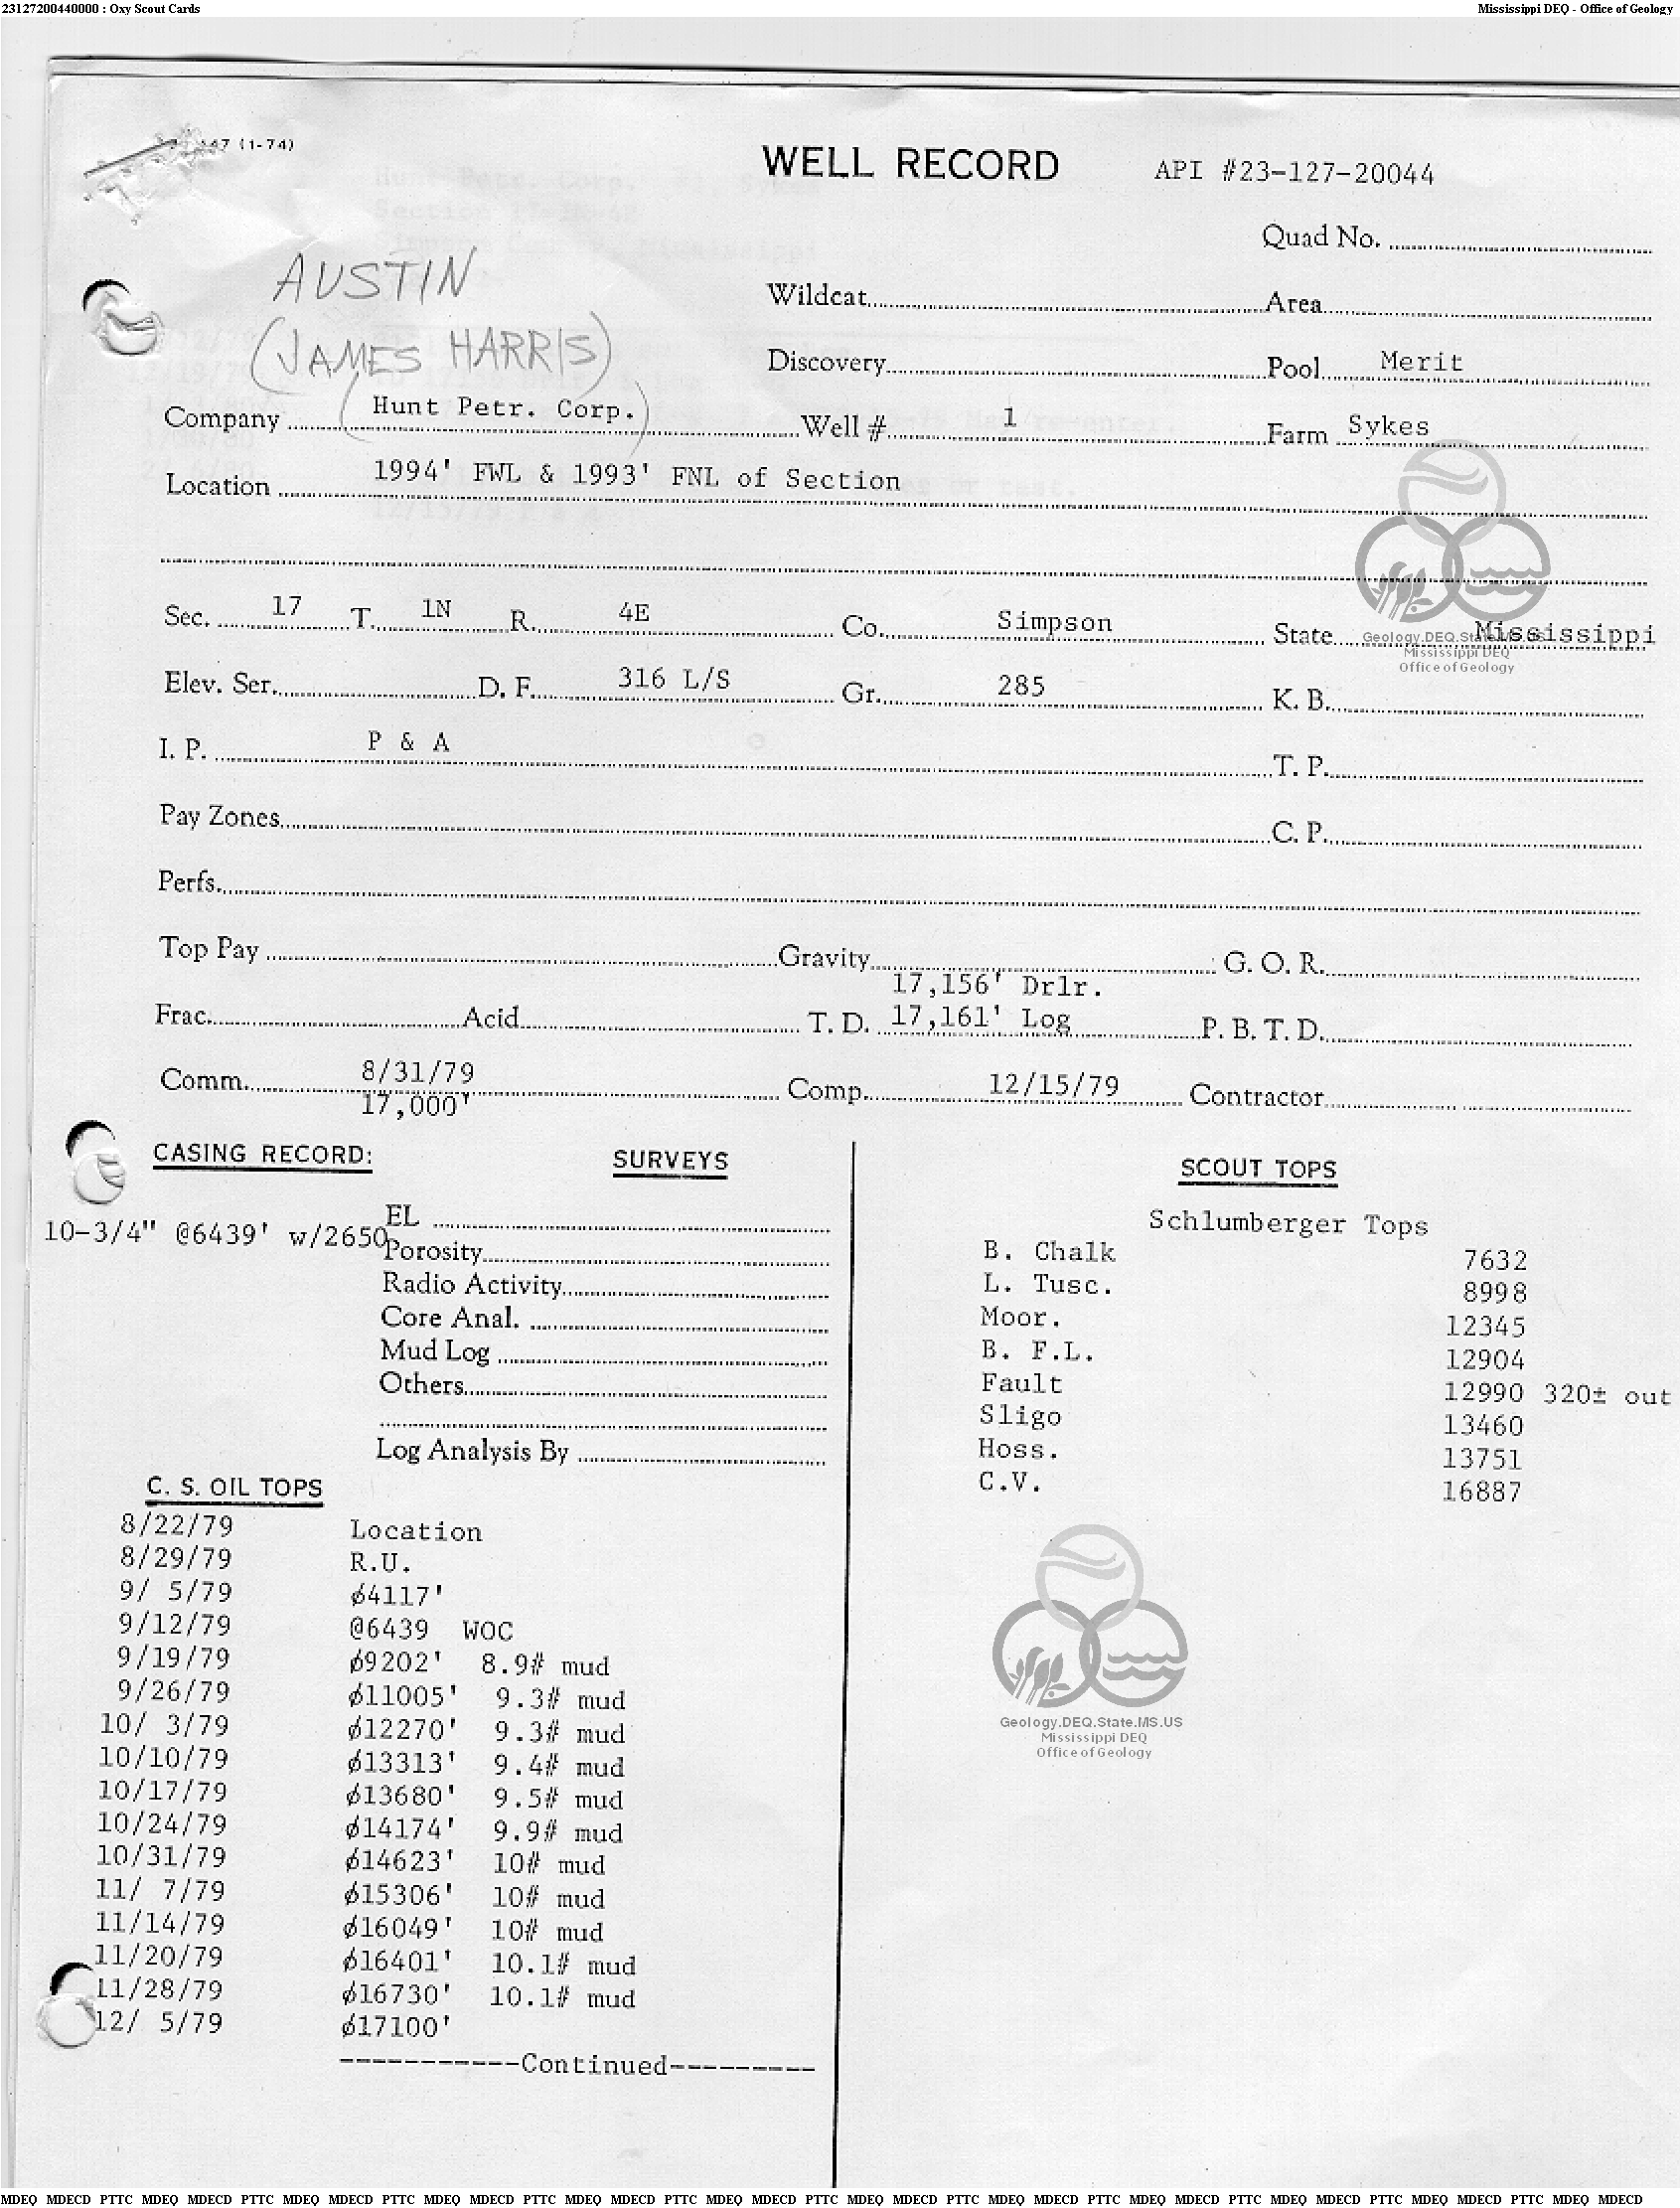 23127200440000 : Oxy Scout Cards
Mississippi DEQ - Office of Geology
(1-74)
WELL RECORD API #23-127-20044
Quad No.
AUSTIN
Wildcat Area
(JAMES HARRIS)
Discovery Pool Merit
Company (Hunt Petr. Corp.) Well # 1 Farm Sykes
Location 1994' FWL & 1993' FNL of Section
Sec. 17 T. 1N R. 4E Co. Simpson State Mississippi
Geology.DEQ.State.MS.US
Mississippi DEQ
Office of Geology
Elev. Ser. D. F. 316 L/S Gr. 285 K. B.
I. P. P & A T. P.
Pay Zones C. P.
Perfs.
Top Pay Gravity G. O. R.
17,156' Drlr.
Frac. Acid T. D. 17,161' Log P. B. T. D.
Comm. 8/31/79 Comp. 12/15/79 Contractor
17,000'
CASING RECORD: SURVEYS
10-3/4" @6439' w/2650
EL
Porosity
Radio Activity
Core Anal.
Mud Log
Others
Log Analysis By
SCOUT TOPS
Schlumberger Tops
B. Chalk 7632
L. Tusc. 8998
Moor. 12345
B. F.L. 12904
Fault 12990 320± out
Sligo 13460
Hoss. 13751
C.V. 16887
C. S. OIL TOPS
8/22/79 Location
8/29/79 R.U.
9/ 5/79 ø4117'
9/12/79 @6439 WOC
9/19/79 ø9202' 8.9# mud
9/26/79 ø11005' 9.3# mud
10/ 3/79 ø12270' 9.3# mud
10/10/79 ø13313' 9.4# mud
10/17/79 ø13680' 9.5# mud
10/24/79 ø14174' 9.9# mud
10/31/79 ø14623' 10# mud
11/ 7/79 ø15306' 10# mud
11/14/79 ø16049' 10# mud
11/20/79 ø16401' 10.1# mud
11/28/79 ø16730' 10.1# mud
12/ 5/79 ø17100'
-----------Continued---------
Geology.DEQ.State.MS.US
Mississippi DEQ
Office of Geology
MDEQ MDECD PTTC MDEQ MDECD PTTC MDEQ MDECD PTTC MDEQ MDECD PTTC MDEQ MDECD PTTC MDEQ MDECD PTTC MDEQ MDECD PTTC MDEQ MDECD PTTC MDEQ MDECD PTTC MDEQ MDECD PTTC MDEQ MDECD PTTC MDEQ MDECD